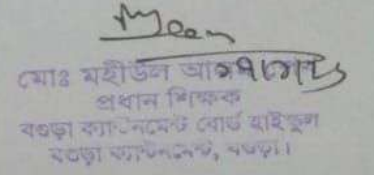 মোঃ মহীউল
প্রধান শিক্ষক
বগুড়া ক্যান্টনমেন্ট বোর্ড হাইস্কুল
বগুড়া ক্যান্টনমেন্ট, বগুড়া।